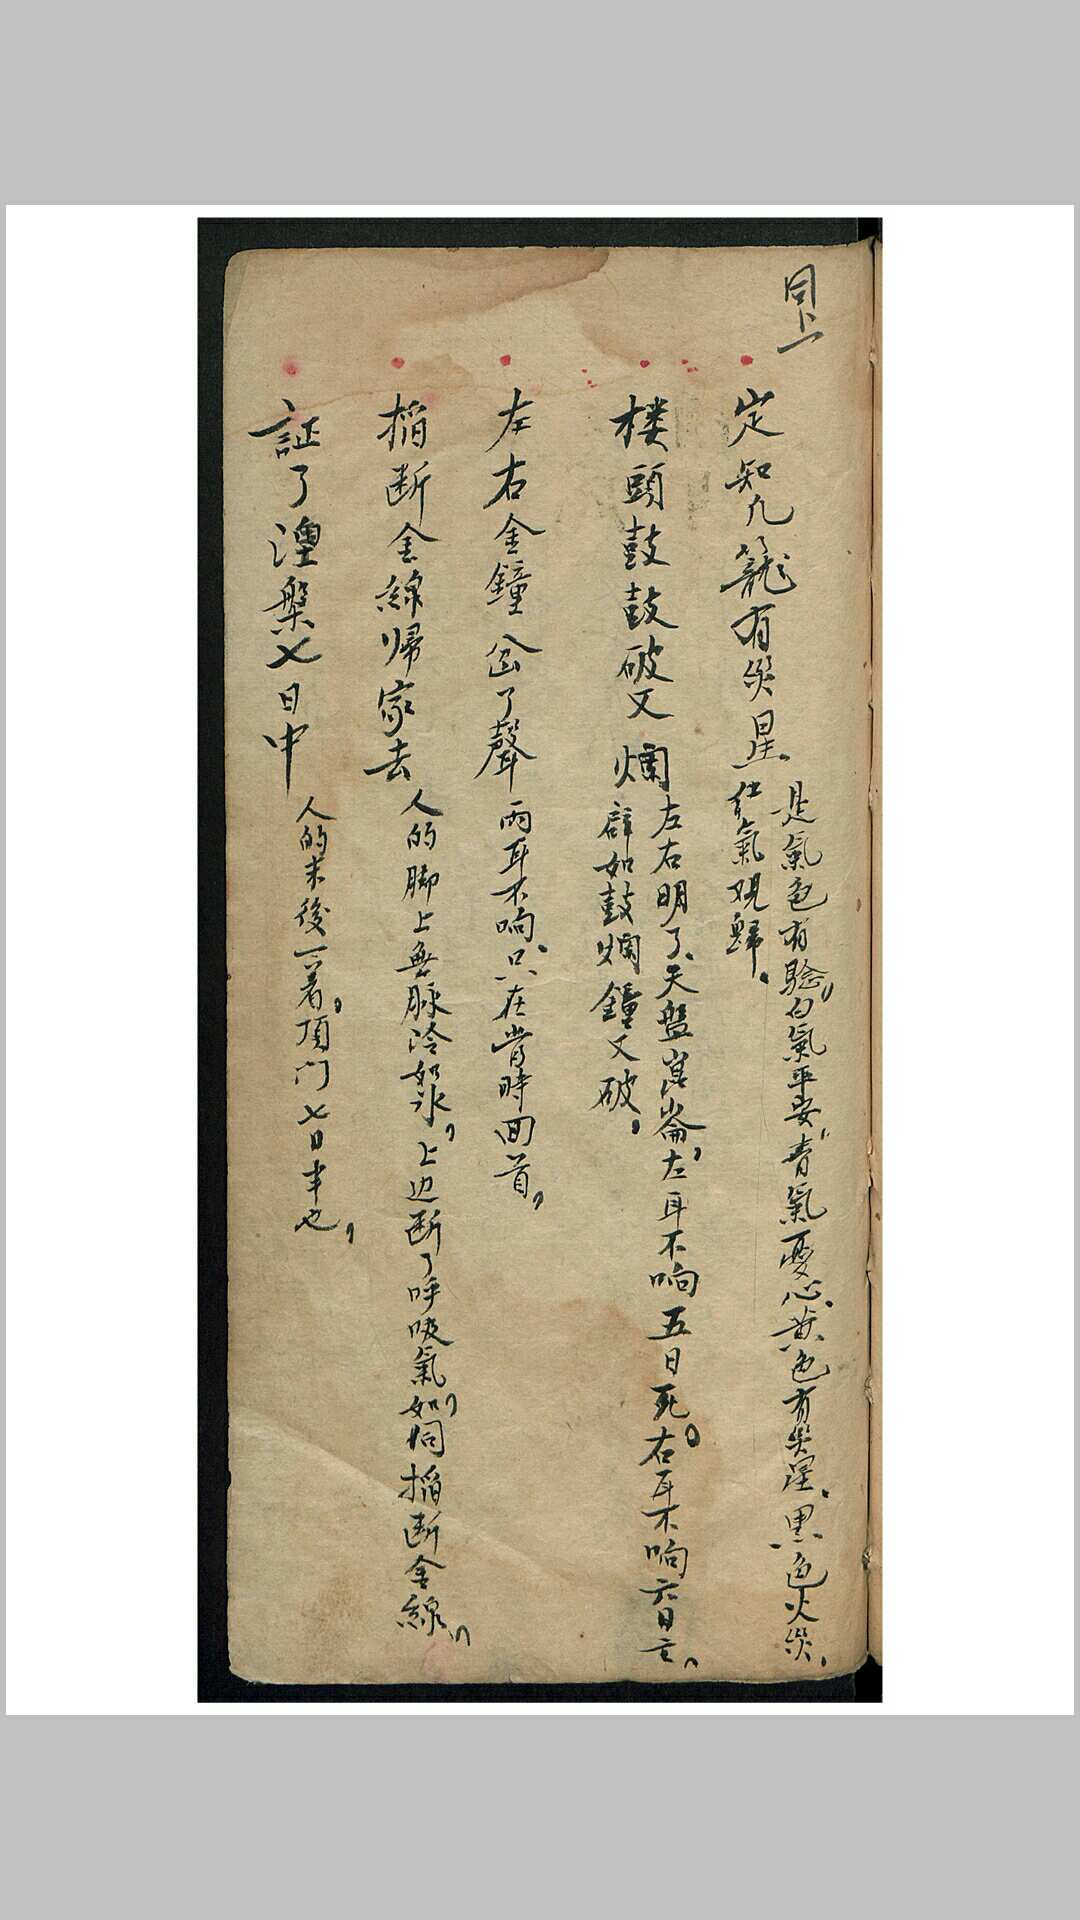 同上
定知九籠有災星
是氣色有驗白氣平安青氣憂心黄色有災星黑色火災
紅氣現歸
楼頭鼓鼓破又爛
左右明了天盤崑崙左耳不响五日死右耳不响六日亡
辟如鼓爛鐘又破
左右金鐘 了聲
兩耳不响只在當時回首
掐断金線帰家去
人的脚上無脉冷如氷上边断了呼吸氣如同掐断金線
証了湼槃七日中
人的末後一著頂門七日半也